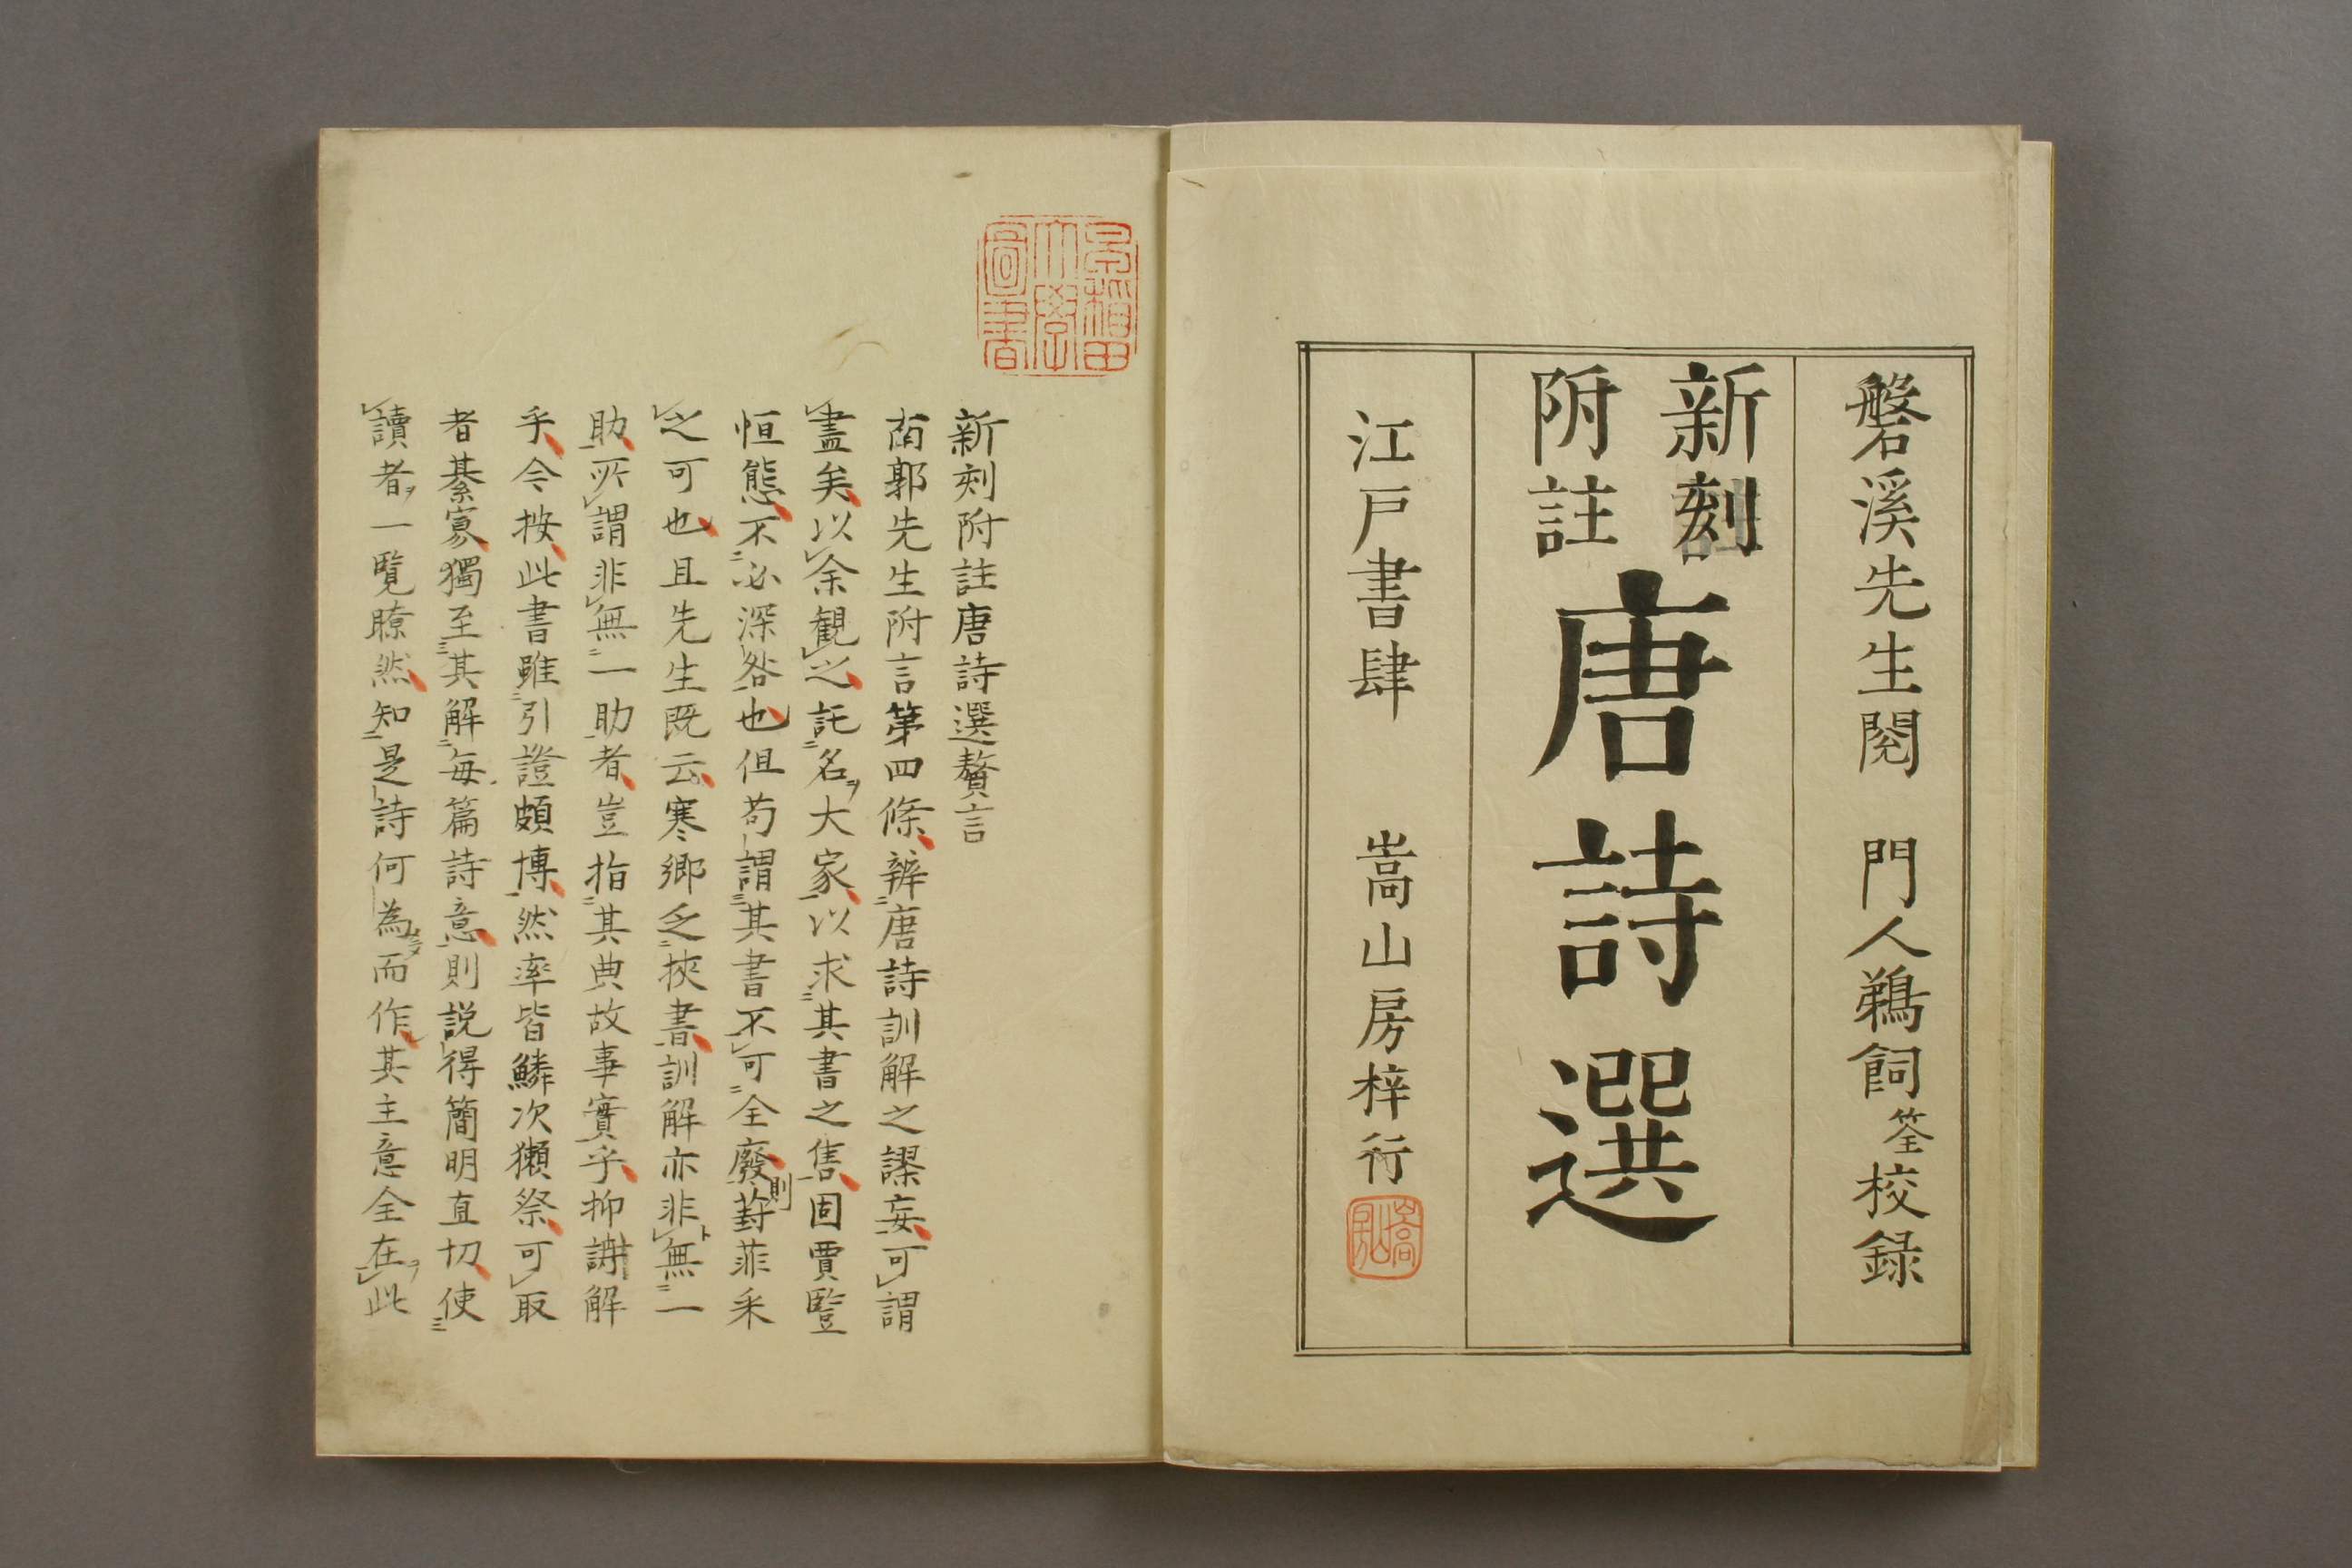 磐溪先生閲 門人鵜飼筌校録
新刻
附註
唐詩選
江戸書肆 嵩山房梓行
早稲田
大學
圖書
新刻附註唐詩選贅言
南郭先生附言第四條辨唐詩訓解之謬妄可謂
盡矣以余觀之託名大家以求其書之售固賈豎
恒態不必深咎也但苟謂其書不可全廢則葑菲采
之可也且先生既云寒鄉乏挾書訓解亦非無一
助所謂非無一助者豈指其典故事實乎抑謝解
乎今按此書雖引證頗博然率皆鱗次獺祭可取
者綦寡獨至其解每篇詩意則説得簡明直切使
讀者一覧瞭然知是詩何為而作其主意全在此